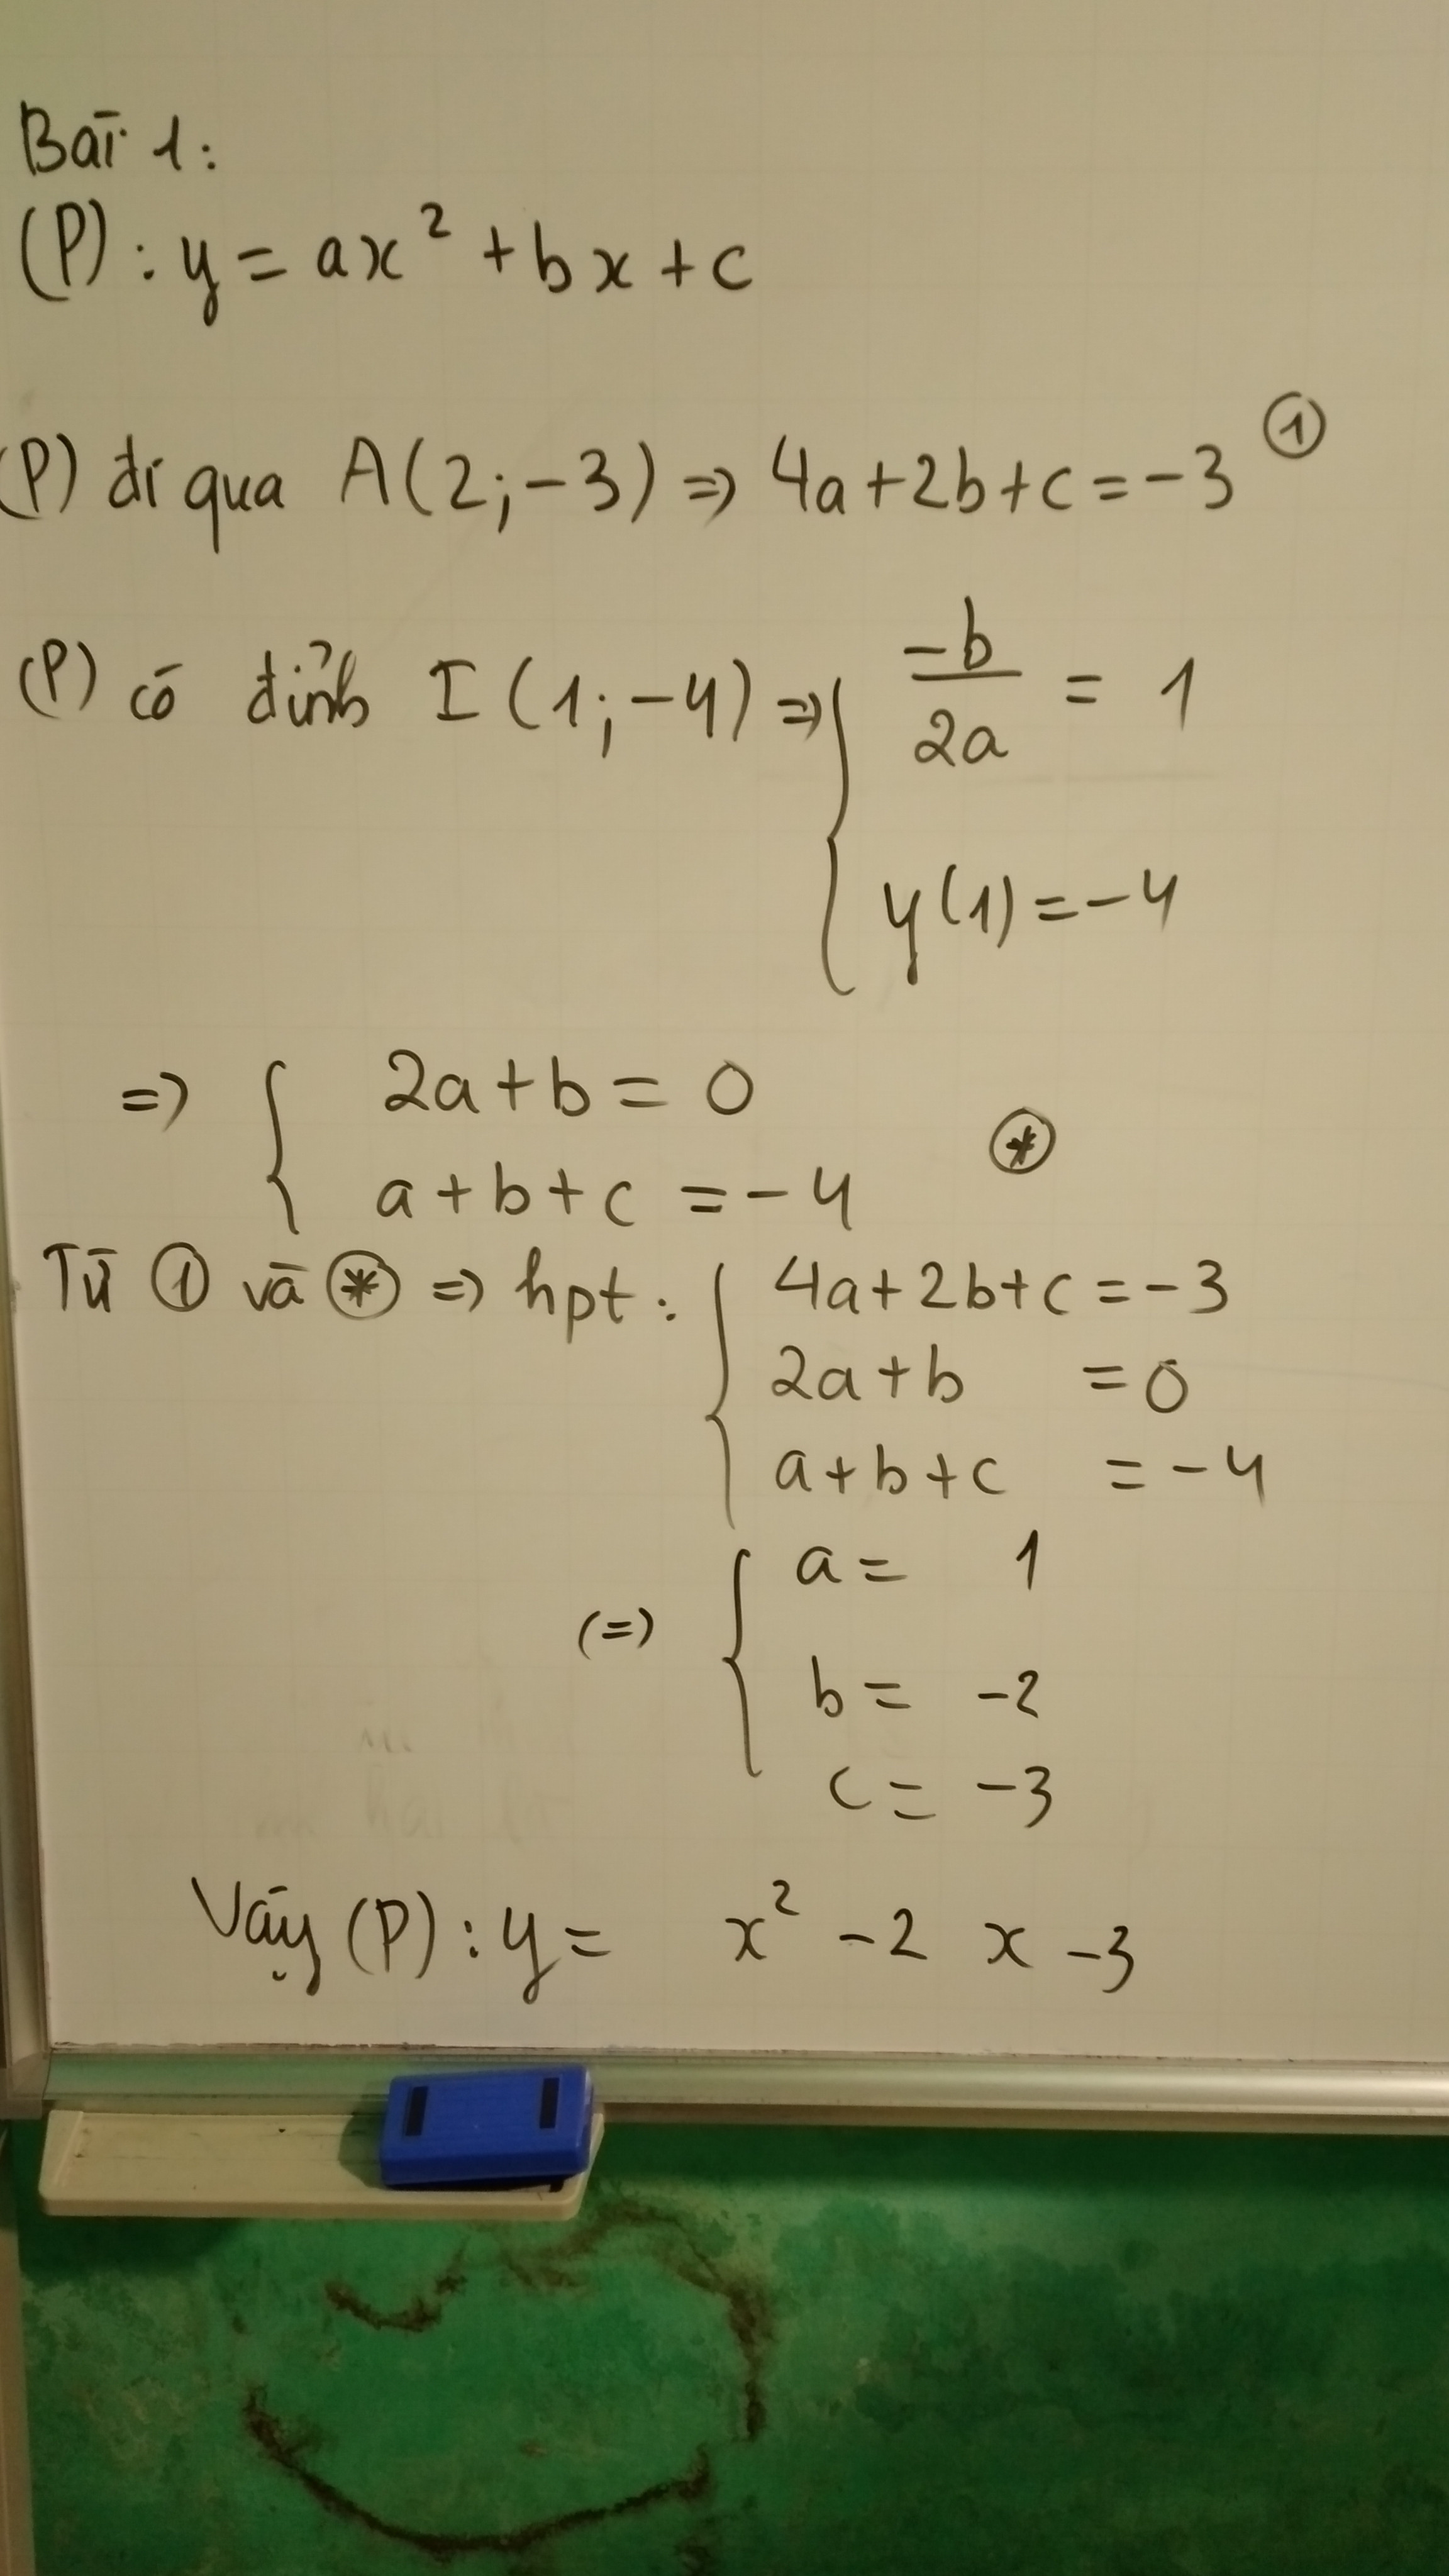 Bài 1:
(P): y = ax² + bx + c
(P) đi qua A(2;-3) => 4a+2b+c=-3 ①
(P) có đỉnh I(1;-4) => { -b/2a = 1
y(1)=-4
=> { 2a+b = 0
a+b+c = -4 ⊛
Từ ① và ⊛ => hpt: { 4a+2b+c=-3
2a+b = 0
a+b+c = -4
(=) { a = 1
b = -2
c = -3
Vậy (P): y = x² -2 x -3